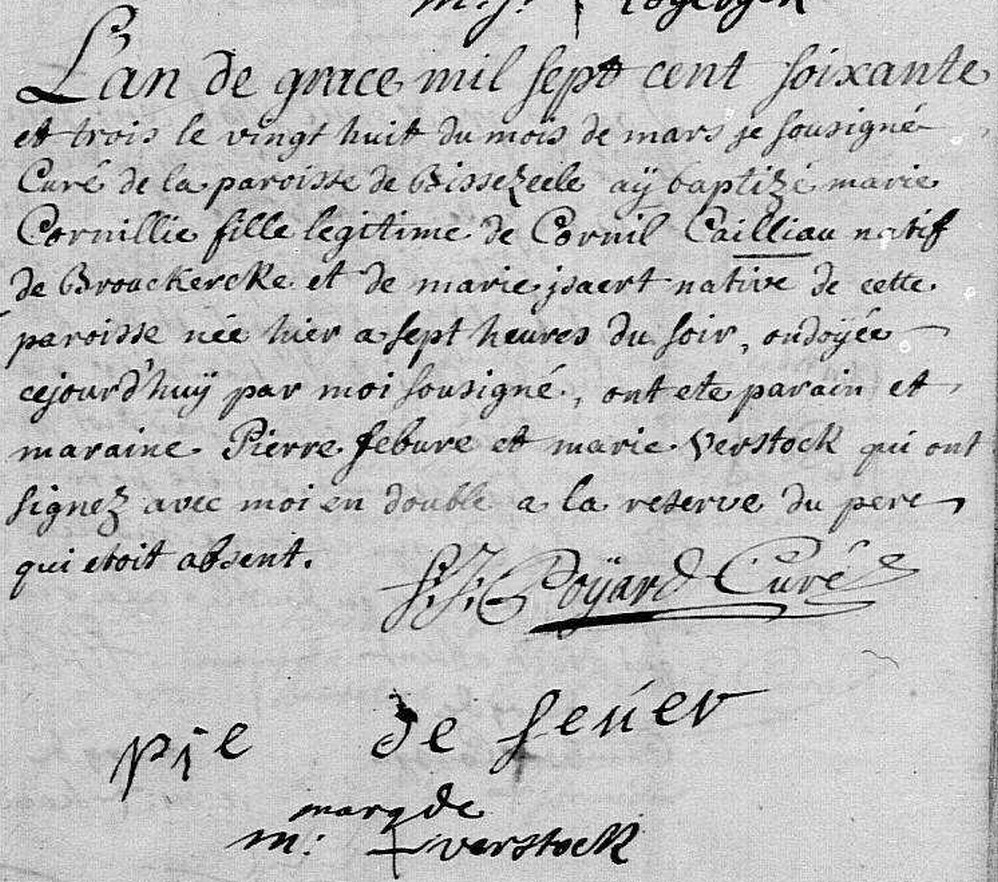 m: j:
Lan de grace mil sept cent soixante
et trois le vingt huit du mois de mars je sousigné
Curé de la paroisse de Bissezeele aÿ baptizé marie
Cornillie fille legitime de Cornil Cailliau natif
de Brouckercke et de marie jsaert native de cette
paroisse née hier a sept heures du soir, ondoyée
cejourd'huÿ par moi sousigné, ont ete parain et
maraine Pierre febure et marie Verstock qui ont
signez avec moi en double a la reserve du pere
qui etoit absent.
Poÿard Curé
pie de
marq de
m: verstock